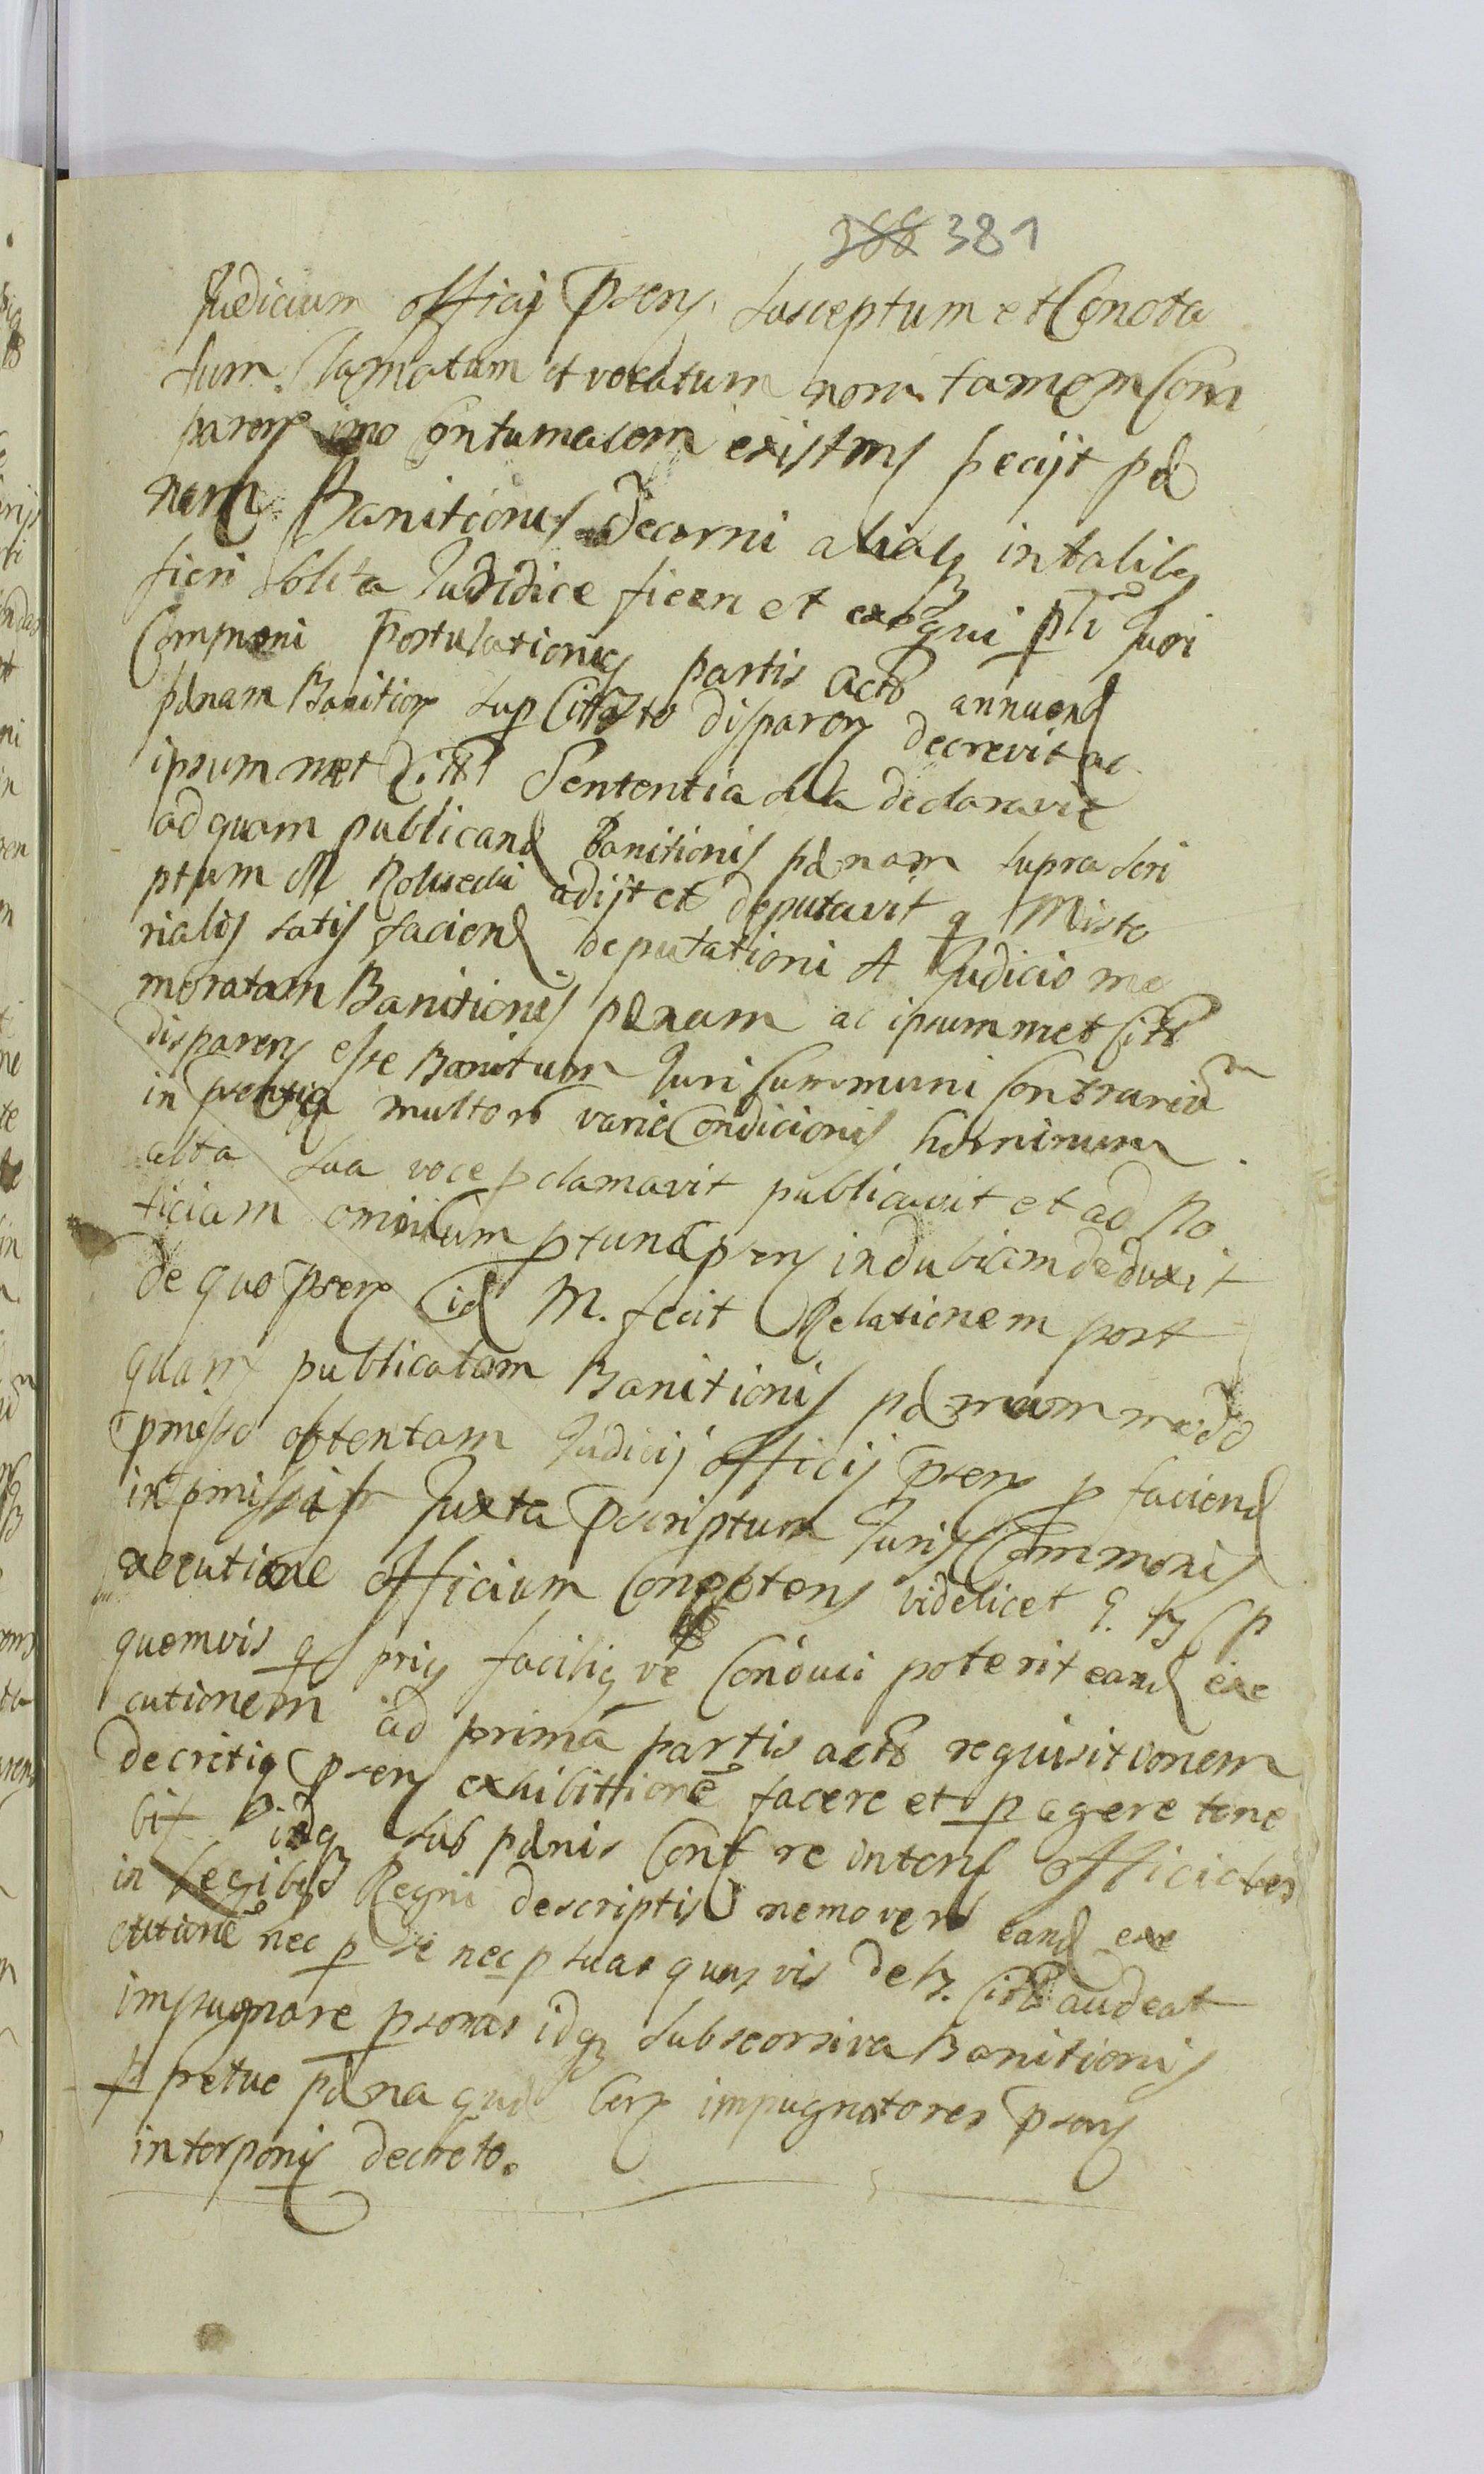 388 381
Judicium officij Psens. susceptum et Conota
tum. Clamatum et vocatum non tamem Com
parens imo Contumacem existens petijt pæ
nam Banitionis decerni aliaq in talibq
fieri solita Judidice fieri et exequi pti Juri
Communi Postulationiq partis actb annuend
pænam Banition sup disparen decrevit ac
ipsummet Citt Sententia sua declaravit
ad quam publicand Banitionis pænam suprascri
ptum M adijt et deputavit q Miste
rialis satis faciend deputationi A Judicio me
moratam Banitionis pænam ac ipsummet Citt
disparens esse Banitum Juri Summuni Contrariū
in psentia multorb varie Condicionis hominum
alta sua voce pclamavit publicavit et ad No
ticiam omnium ptunc psens indubiam deduxit
de quo psens id M. fecit Relationem post
quam publicatam Banitionis pænam modo
pmisso obtentam Judicij officij psens p faciend
in pmissis Juxta Pscriptum Juris Communis
executione officium Conpetens videlicet q. tz p
quemvis q prius faciliq ve Conduci poterit eand exe
cutionem ad primā partis actb requisitionem
decretiq psens exhibittionē facere et p agere tene
bit idq sub pænis Cont re intens officiales
in Legibus Regni descriptis nemo vero eand exe
cutionē nec p se nec p suas quasvis detz. Citt audeat
impugnare psonas idq sub seorsiva Banitionis
ppetue pæna impugnatores psens
interponis decreto.